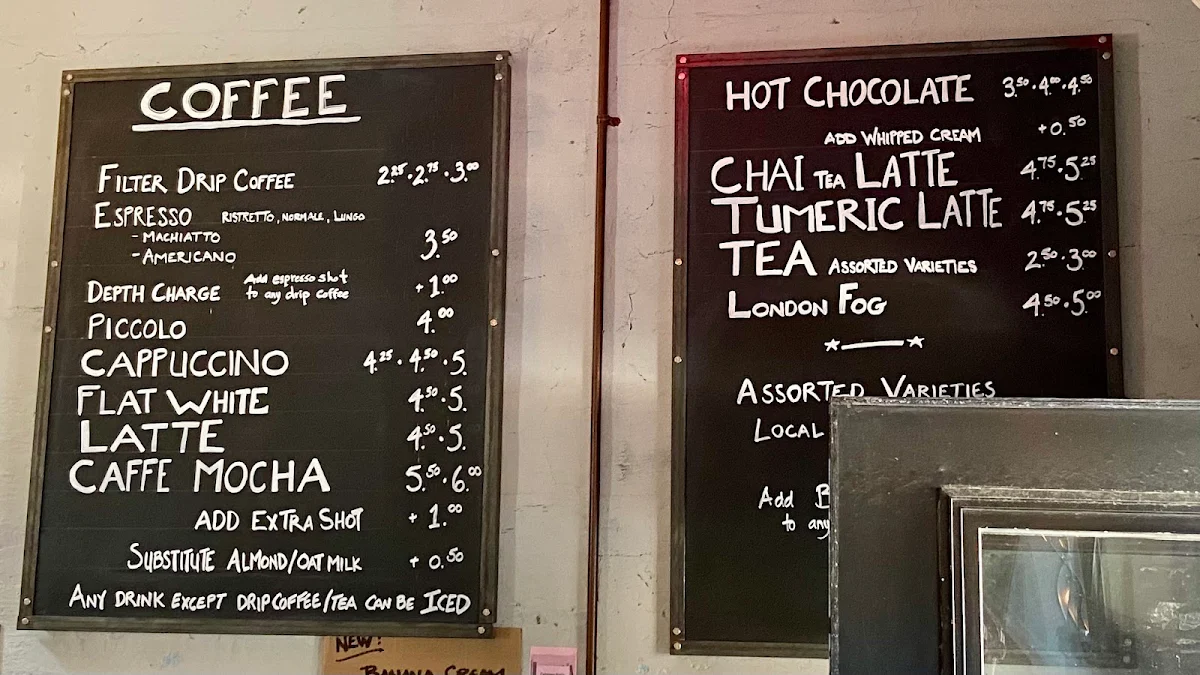 COFFEE
FILTER DRIP COFFEE 2.25 · 2.75 · 3.00
ESPRESSO RISTRETTO, NORMALE, LUNGO
- MACHIATTO
- AMERICANO 3.50
DEPTH CHARGE Add espresso shot to any drip coffee + 1.00
PICCOLO 4.00
CAPPUCCINO 4.25 · 4.50 · 5.
FLAT WHITE 4.50 · 5.
LATTE 4.50 · 5.
CAFFE MOCHA 5.50 · 6.00
ADD EXTRA SHOT + 1.00
SUBSTITUTE ALMOND/OAT MILK + 0.50
ANY DRINK EXCEPT DRIP COFFEE/TEA CAN BE ICED
HOT CHOCOLATE 3.50 · 4.00 · 4.50
ADD WHIPPED CREAM + 0.50
CHAI TEA LATTE 4.75 · 5.25
TUMERIC LATTE 4.75 · 5.25
TEA ASSORTED VARIETIES 2.50 · 3.00
LONDON FOG 4.50 · 5.00
ASSORTED VARIETIES
LOCAL
Add
to any
NEW!
BANANA CREAM